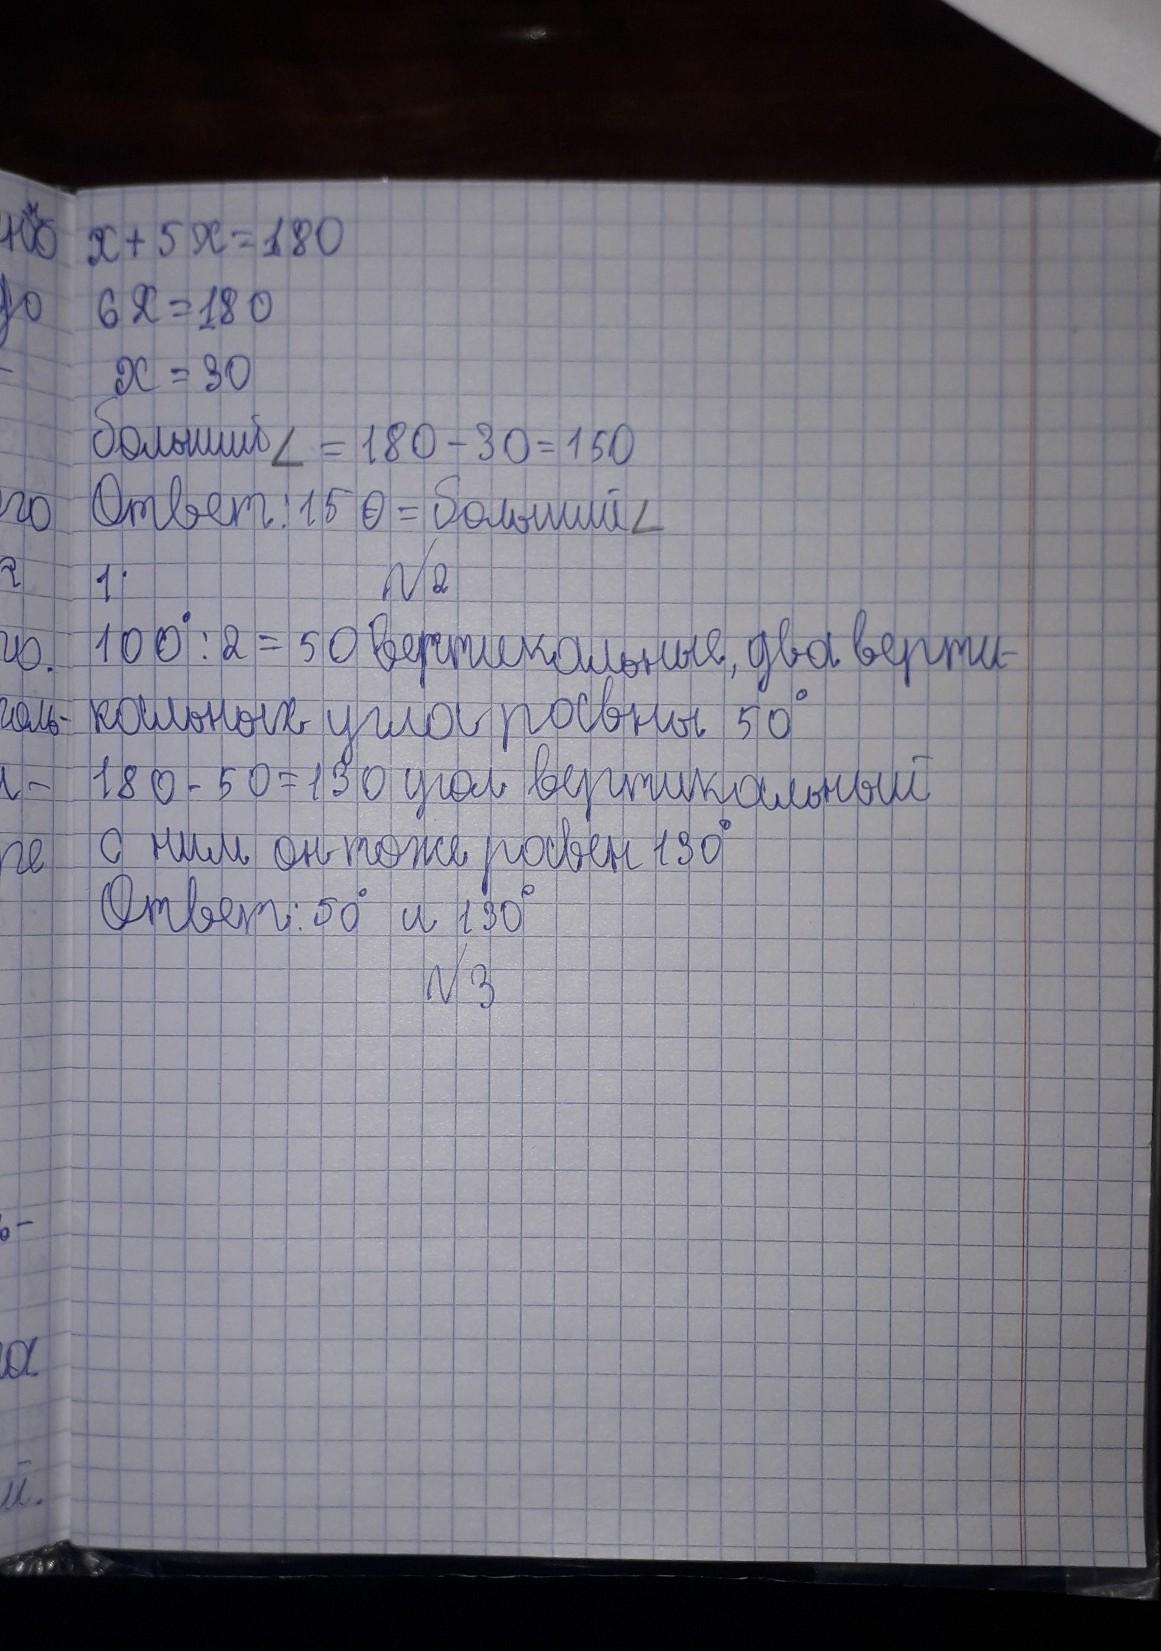 х+5х=180
6х=180
х=30
больший∠ = 180-30=150
Ответ: 150= больший∠
1. №2
100°:2=50 вертикальные, два верти-
кальных угла равны 50°
180-50=130 угол вертикальный
с ним он тоже равен 130°
Ответ: 50° и 130°
№3